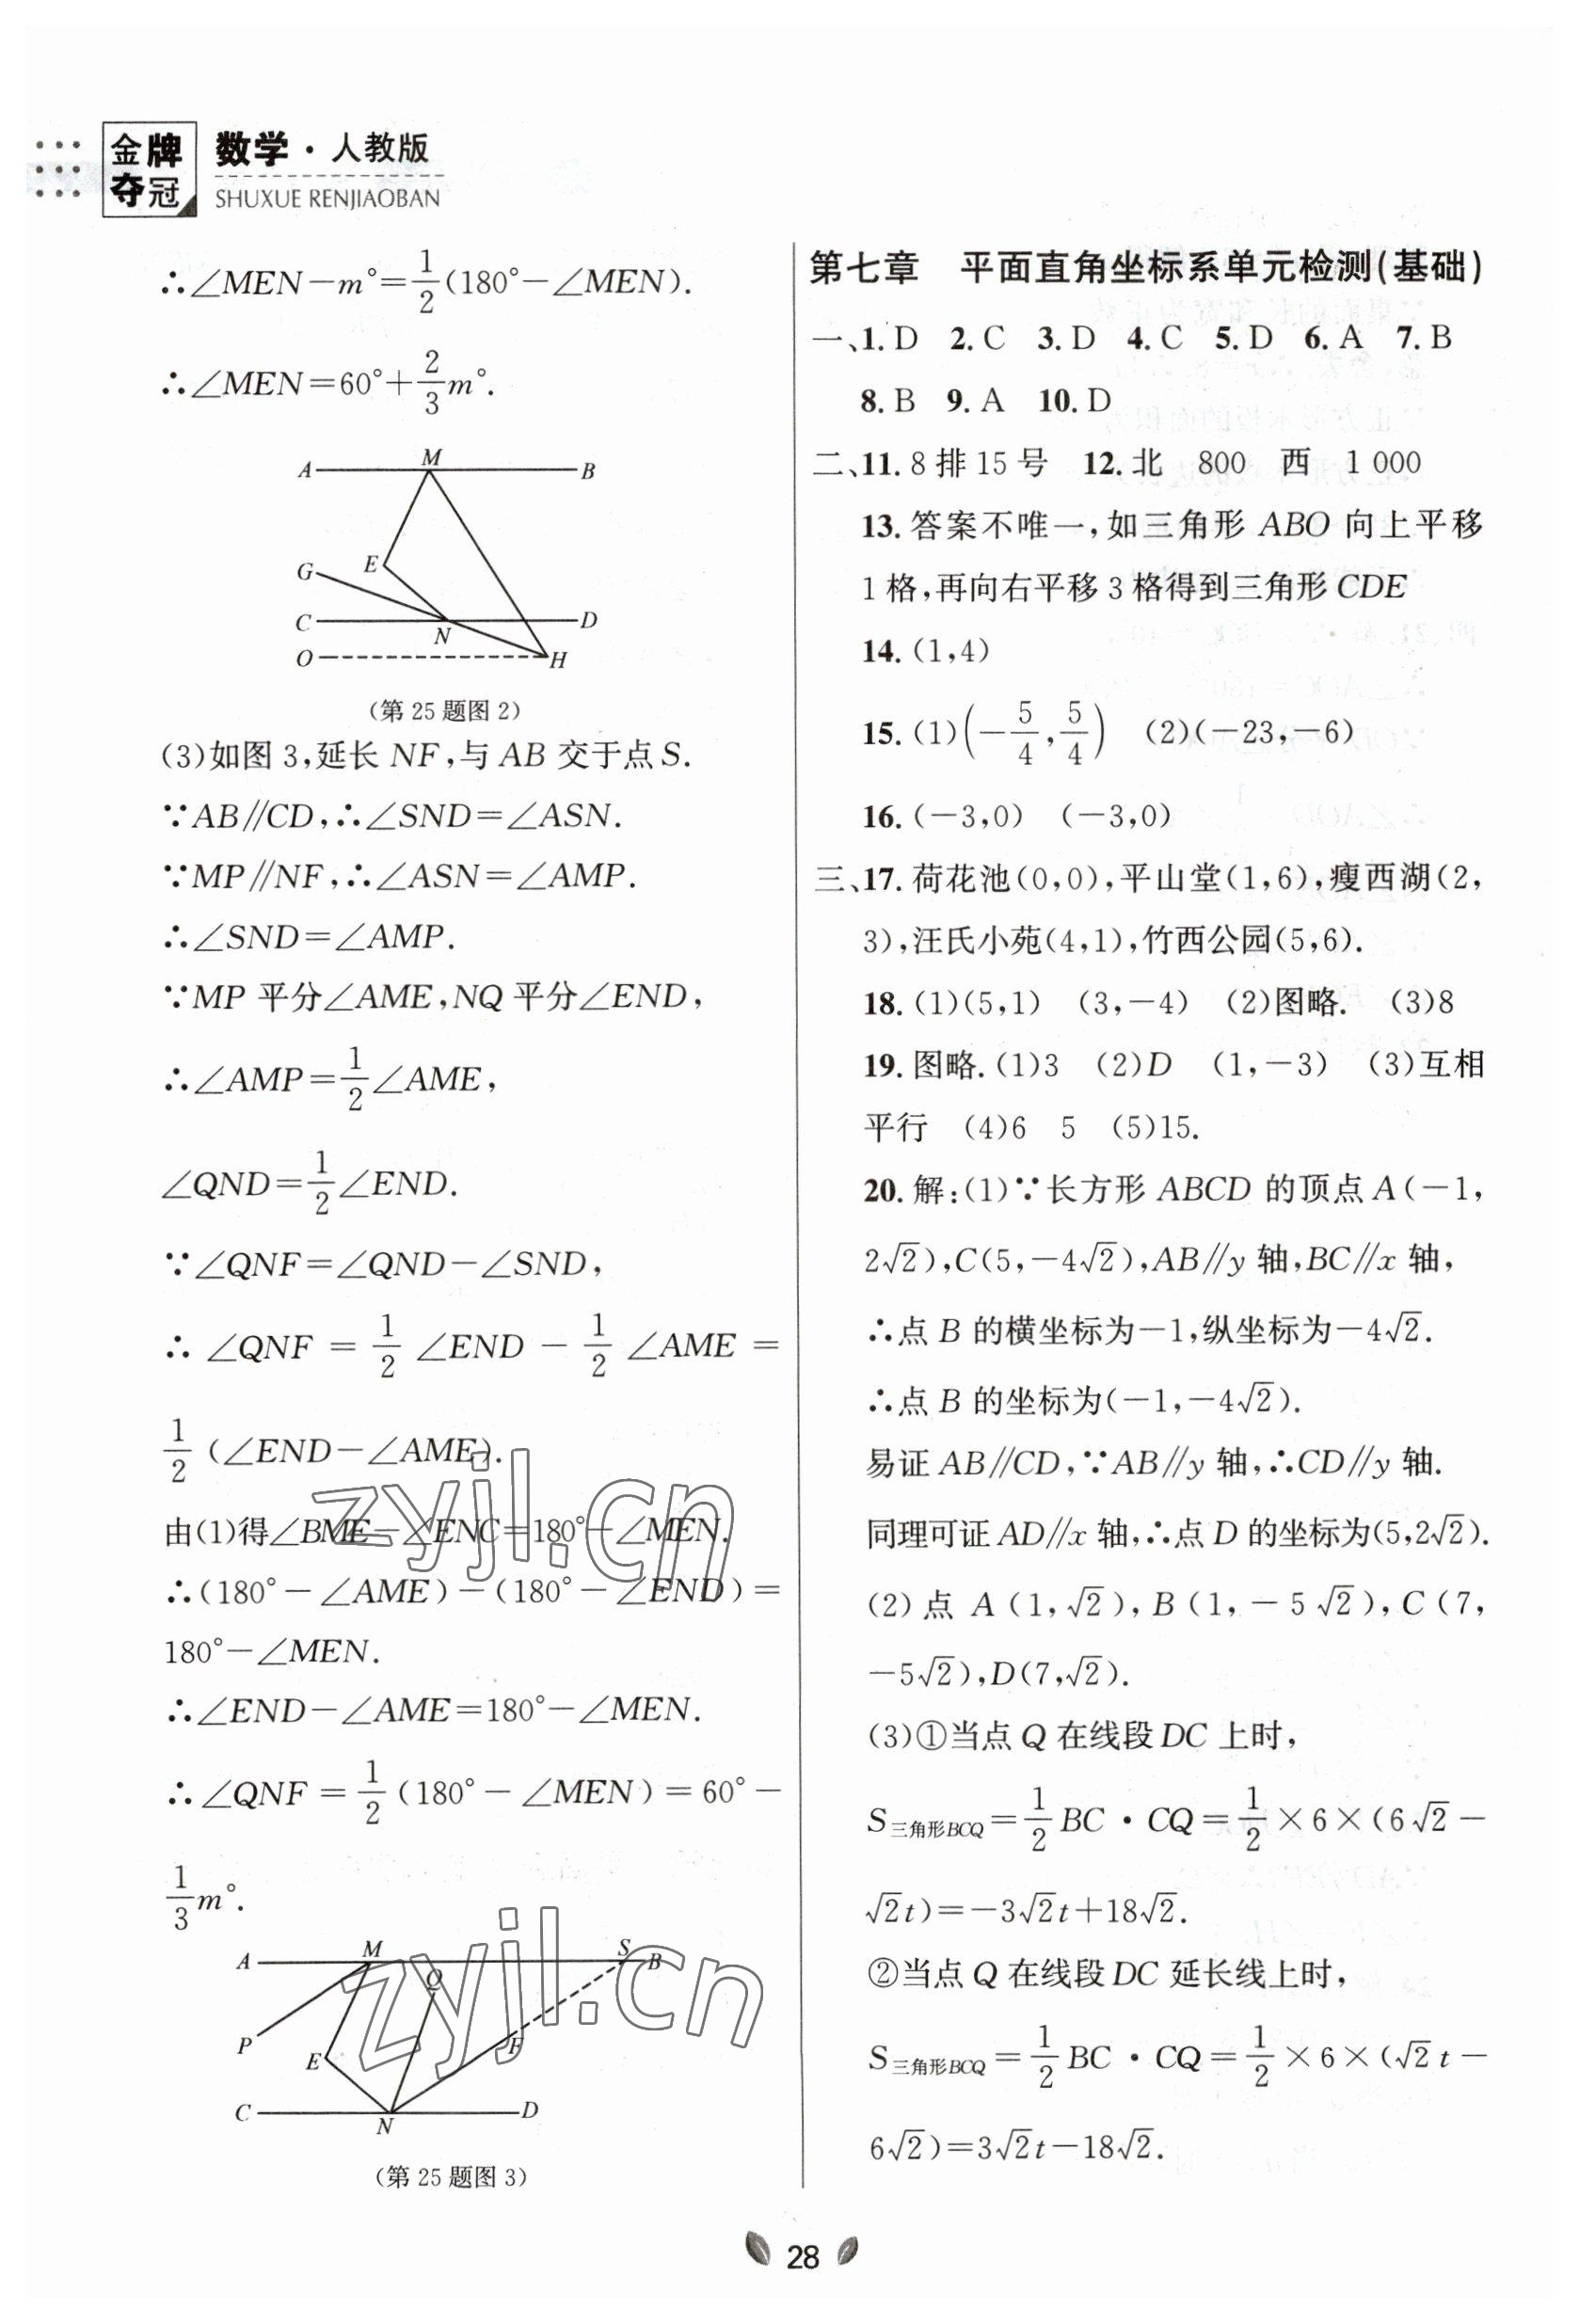 金牌夺冠 数学·人教版
SHUXUE RENJIAOBAN
∴∠MEN－m°＝1/2(180°－∠MEN).
∴∠MEN＝60°＋2/3m°.
A M B
G E
C N D
O H
(第25题图2)
(3)如图3,延长NF,与AB交于点S.
∵AB∥CD,∴∠SND＝∠ASN.
∵MP∥NF,∴∠ASN＝∠AMP.
∴∠SND＝∠AMP.
∵MP平分∠AME,NQ平分∠END,
∴∠AMP＝1/2∠AME,
∠QND＝1/2∠END.
∵∠QNF＝∠QND－∠SND,
∴∠QNF＝1/2∠END－1/2∠AME＝
1/2(∠END－∠AME).
由(1)得∠BME－∠ENC＝180°－∠MEN.
∴(180°－∠AME)－(180°－∠END)＝
180°－∠MEN.
∴∠END－∠AME＝180°－∠MEN.
∴∠QNF＝1/2(180°－∠MEN)＝60°－
1/3m°.
A M S B
Q
P E F
C N D
(第25题图3)
第七章 平面直角坐标系单元检测(基础)
一、1.D 2.C 3.D 4.C 5.D 6.A 7.B
8.B 9.A 10.D
二、11.8排15号 12.北 800 西 1 000
13.答案不唯一,如三角形ABO向上平移
1格,再向右平移3格得到三角形CDE
14.(1,4)
15.(1)(－5/4,5/4) (2)(－23,－6)
16.(－3,0) (－3,0)
三、17.荷花池(0,0),平山堂(1,6),瘦西湖(2,
3),汪氏小苑(4,1),竹西公园(5,6).
18.(1)(5,1) (3,－4) (2)图略. (3)8
19.图略.(1)3 (2)D (1,－3) (3)互相
平行 (4)6 5 (5)15.
20.解:(1)∵长方形ABCD的顶点A(－1,
2√2),C(5,－4√2),AB∥y轴,BC∥x轴,
∴点B的横坐标为－1,纵坐标为－4√2.
∴点B的坐标为(－1,－4√2).
易证AB∥CD,∵AB∥y轴,∴CD∥y轴.
同理可证AD∥x轴,∴点D的坐标为(5,2√2).
(2)点A(1,√2),B(1,－5√2),C(7,
－5√2),D(7,√2).
(3)①当点Q在线段DC上时,
S三角形BCQ＝1/2BC·CQ＝1/2×6×(6√2－
√2t)＝－3√2t＋18√2.
②当点Q在线段DC延长线上时,
S三角形BCQ＝1/2BC·CQ＝1/2×6×(√2t－
6√2)＝3√2t－18√2.
28
zyjl.cn
zyjl.cn